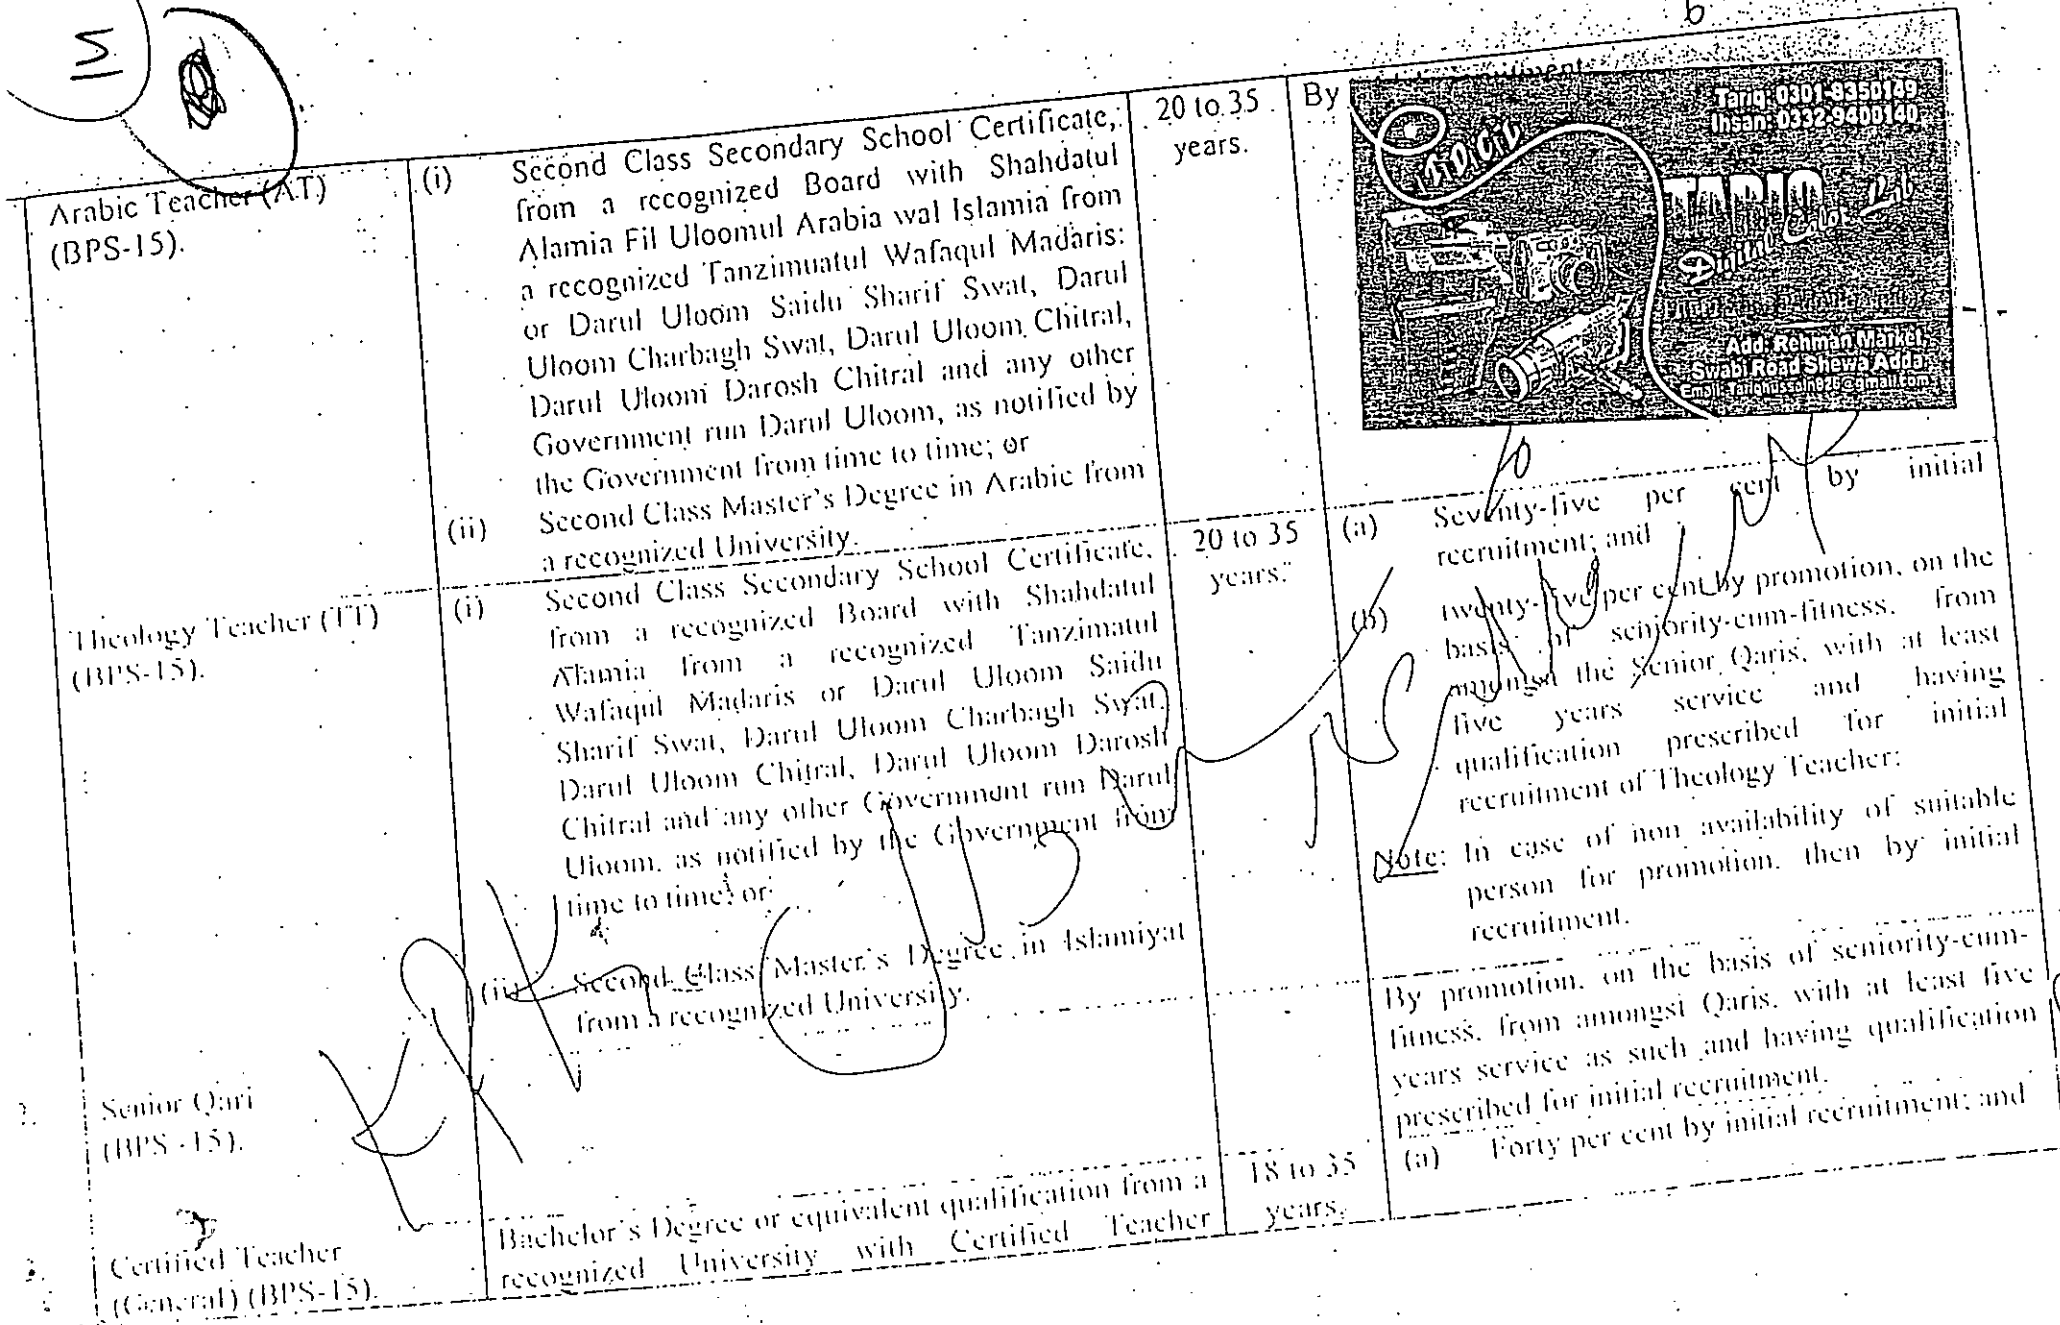 6
Arabic Teacher (AT)
(BPS-15).
(i) Second Class Secondary School Certificate,
from a recognized Board with Shahdatul
Alamia Fil Uloomul Arabia wal Islamia from
a recognized Tanzimuatul Wafaqul Madaris:
or Darul Uloom Saidu Sharif Swat, Darul
Uloom Charbagh Swat, Darul Uloom Chitral,
Darul Uloom Darosh Chitral and any other
Government run Darul Uloom, as notified by
the Government from time to time; or
(ii) Second Class Master's Degree in Arabic from
a recognized University.
20 to 35
years.
By
Tariq: 0301-8350149
Ihsan: 0332-9400140
TARIQ
Digital Color Lab
Add: Rehman Market,
Swabi Road Shewa Adda
Theology Teacher (TT)
(BPS-15).
(i) Second Class Secondary School Certificate,
from a recognized Board with Shahdatul
Alamia from a recognized Tanzimatul
Wafaqul Madaris or Darul Uloom Saidu
Sharif Swat, Darul Uloom Charbagh Swat,
Darul Uloom Chitral, Darul Uloom Darosh
Chitral and any other Government run Darul
Uloom, as notified by the Government from
time to time; or
(ii) Second Class Master's Degree in Islamiyat
from a recognized University.
20 to 35
years.
(a) Seventy-five per cent by initial
recruitment; and
(b) twenty-five per cent by promotion, on the
basis of seniority-cum-fitness, from
amongst the Senior Qaris, with at least
five years service and having
qualification prescribed for initial
recruitment of Theology Teacher:
Note: In case of non availability of suitable
person for promotion, then by initial
recruitment.
Senior Qari
(BPS -15).
By promotion, on the basis of seniority-cum-
fitness, from amongst Qaris, with at least five
years service as such and having qualification
prescribed for initial recruitment.
Certified Teacher
(General) (BPS-15).
Bachelor's Degree or equivalent qualification from a
recognized University with Certified Teacher
18 to 35
years.
(a) Forty per cent by initial recruitment; and